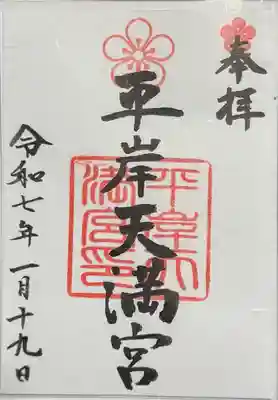 奉拝
平岸天満宮
平岸天
満宮之印
令和七年一月十九日